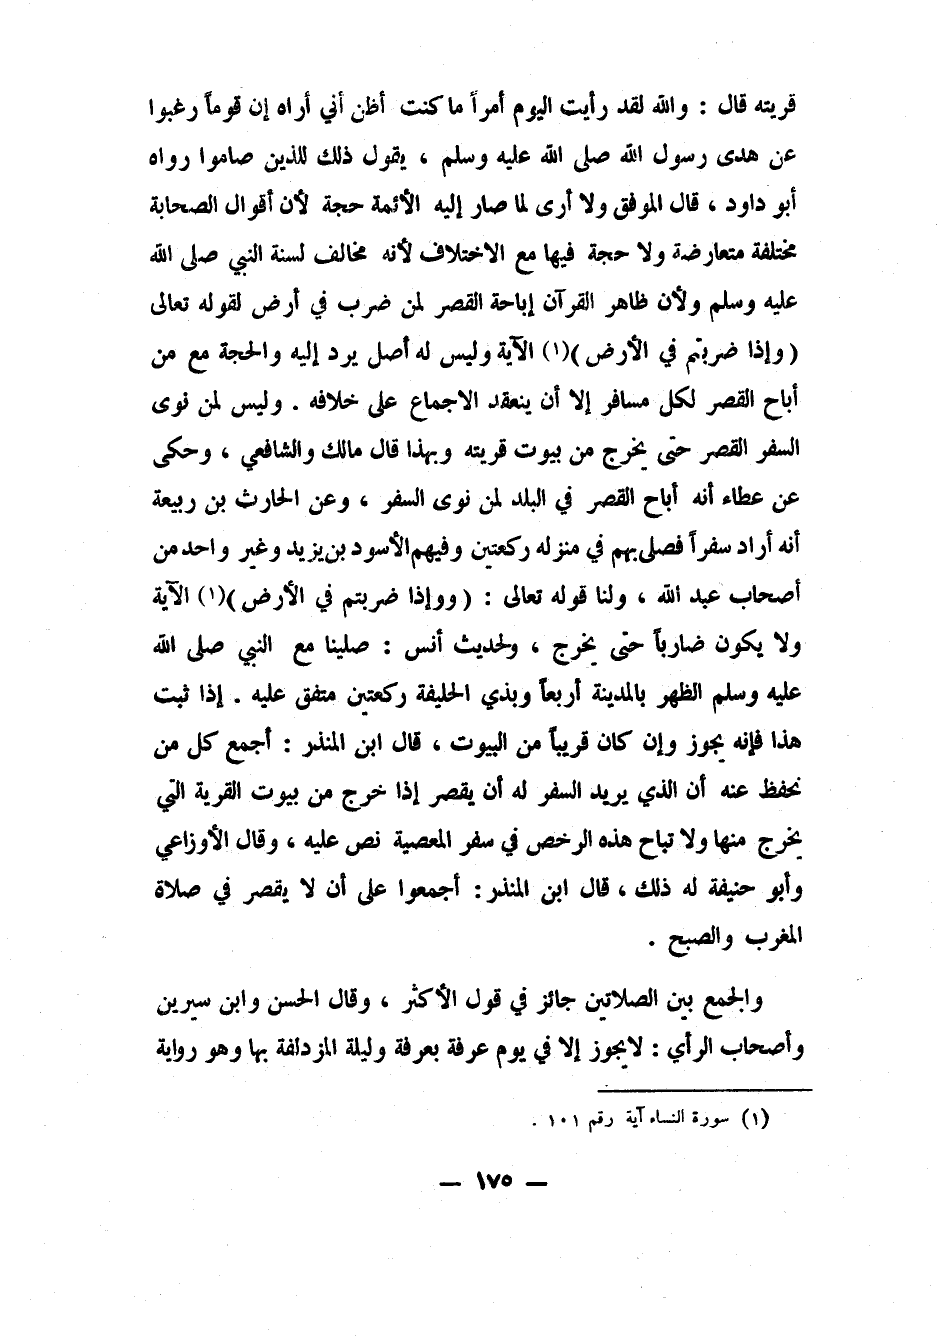 قريته قال : والله لقد رأيت اليوم أمراً ما كنت أظن أني أراه إن قوماً رغبوا
عن هدى رسول الله صلى الله عليه وسلم ، يقول ذلك للذين صاموا رواه
أبو داود ، قال الموفق ولا أرى لما صار إليه الأئمة حجة لأن أقوال الصحابة
مختلفة متعارضة ولا حجة فيها مع الاختلاف لأنه مخالف لسنة النبي صلى الله
عليه وسلم ولأن ظاهر القرآن إباحة القصر لمن ضرب في أرض لقوله تعالى
( وإذا ضربتم في الأرض )(١) الآية وليس له أصل يرد إليه والحجة مع من
أباح القصر لكل مسافر إلا أن ينعقد الاجماع على خلافه . وليس لمن نوى
السفر القصر حتى يخرج من بيوت قريته وبهذا قال مالك والشافعي ، وحكى
عن عطاء أنه أباح القصر في البلد لمن نوى السفر ، وعن الحارث بن ربيعة
أنه أراد سفراً فصلى بهم في منزله ركعتين وفيهم الأسود بن يزيد وغير واحد من
أصحاب عبد الله ، ولنا قوله تعالى : ( ووإذا ضربتم في الأرض )(١) الآية
ولا يكون ضارباً حتى يخرج ، ولحديث أنس : صلينا مع النبي صلى الله
عليه وسلم الظهر بالمدينة أربعاً وبذي الحليفة ركعتين متفق عليه . إذا ثبت
هذا فإنه يجوز وإن كان قريباً من البيوت ، قال ابن المنذر : أجمع كل من
نحفظ عنه أن الذي يريد السفر له أن يقصر إذا خرج من بيوت القرية التي
يخرج منها ولا تباح هذه الرخص في سفر المعصية نص عليه ، وقال الأوزاعي
وأبو حنيفة له ذلك ، قال ابن المنذر : أجمعوا على أن لا يقصر في صلاة
المغرب والصبح .
والجمع بين الصلاتين جائز في قول الأكثر ، وقال الحسن وابن سيرين
وأصحاب الرأي : لا يجوز إلا في يوم عرفة بعرفة وليلة المزدلفة بها وهو رواية
(١) سورة النساء آية رقم ١٠١ .
— ١٧٥ —